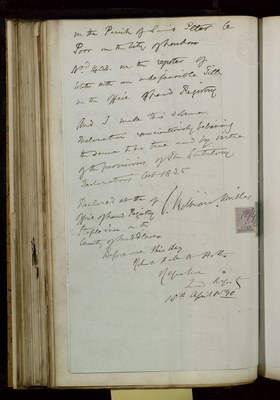 in the Parish of Saint Peter le
Poor in the City of London
No. in the register of
titles with an indefeasible Title
in the office of Land Registry
And I make this solemn
Declaration conscientiously believing
the same to be true and by virtue
of the provisions of the Statutory
Declarations Act 1835
Declared at the
office of Land Registry
Staple inn in the
County of Middlesex
Before me this day
Registrar
Land Registry
10th April